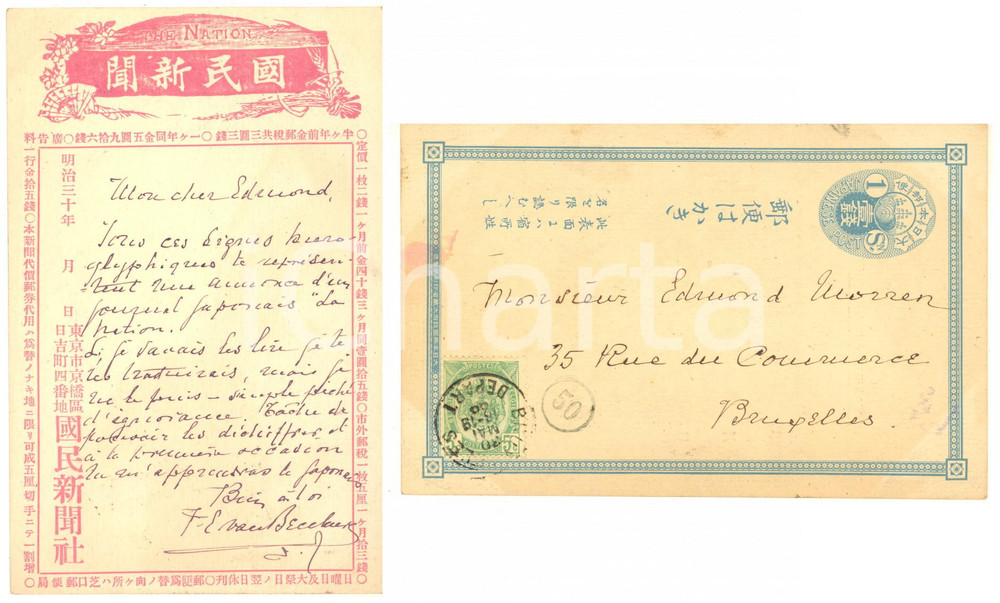 THE NATION
國民新聞
半ヶ年前金郵稅共三圓三錢〇一ヶ年同金五圓九拾六錢〇廣告料
一行金拾五錢〇本新聞代價郵券代用ハ爲替ノナキ地ニ限リ可成五厘切手ニテ一割增
〇定價一枚二錢一ヶ月前金四十錢三ヶ月同壹圓拾五錢〇市外郵稅一枚五厘一ヶ月拾三錢
〇日曜日及大祭日ノ翌日休刋〇郵便爲替ノ向ヶ所ハ芝口郵便局〇
明治三十年 月 日
東京市京橋區
日吉町四番地
國民新聞社
Mon cher Edmond,
Tous ces signes hiero-
glyphiques te représen-
tent une annonce d'un
journal Japonais "La
Nation.
Si je savais les lire je te
les traduirais, mais je
ne le puis — simple péché
d'ignorance. Tâche de
pouvoir les déchiffrer et
à la première occasion
tu m'apprendras le Japonais
Bien à toi
郵便はかき
此表面ニハ宿所姓
名を限り認むへし
大日本帝國郵便
壹錢
1 Sn
JAPANESE POST
Monsieur Edmond Morren
35 Rue du Commerce
Bruxelles.
50
DEPART
MAI
POSTES
charta